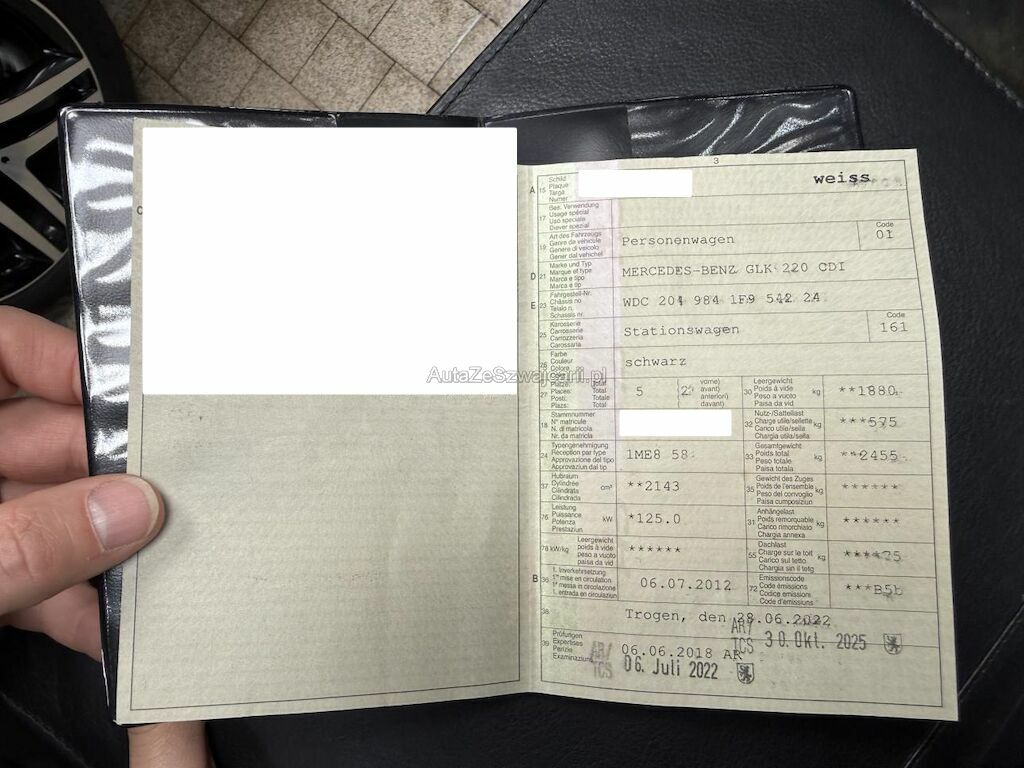 3
C
A 15 Schild Plaque Targa Numer
weiss
17 Bes. Verwendung Usage spécial Uso speciale Diever spezial
19 Art des Fahrzeugs Genre de véhicule Genere di veicolo Gener dal vehichel
Personenwagen
Code 01
D 21 Marke und Typ Marque et type Marca e tipo Marca e tip
MERCEDES-BENZ GLK 220 CDI
E 23 Fahrgestell-Nr. Châssis no Telaio n. Schassis nr.
WDC 204 984 1F9 542 24
25 Karosserie Carrosserie Carrozzeria Carossaria
Stationswagen
Code 161
26 Farbe Couleur Colore
schwarz
AutaZeSzwajcarii.pl
27 Plätze: Total Places: Total Posti: Totale Plazs: Total
5
2
vorne) avant) anteriori) davant)
30 Leergewicht Poids à vide Peso a vuoto Paisa da vid kg
**1880
18 Stammnummer N° matricule N. di matricola Nr. da matricla
32 Nutz-/Sattellast Charge utile/sellette Carico utile/sella Chargia utila/sella kg
***575
24 Typengenehmigung Réception par type Approvazione del tipo Approvaziun dal tip
1ME8 58
33 Gesamtgewicht Poids total Peso totale Paisa totala kg
**2455
37 Hubraum Cylindrée Cilindrata Cilindrada cm³
**2143
35 Gewicht des Zuges Poids de l'ensemble Peso del convoglio Paisa cumposiziun kg
******
76 Leistung Puissance Potenza Prestaziun kW
*125.0
31 Anhängelast Poids remorquable Carico rimorchiato Chargia annexa kg
******
78 kW/kg Leergewicht poids à vide peso a vuoto paisa da vid
******
55 Dachlast Charge sur le toit Carico sul tetto Chargia sin il tetg kg
****75
B 36 1. Inverkehrsetzung 1re mise en circulation 1a messa in circolazione 1. entrada en circulaziun
06.07.2012
72 Emissionscode Code émissions Codice emissioni Code d'emissiuns
***B5b
38
Trogen, den 28.06.2022
39 Prüfungen Expertises Perizie Examinaziuns
06.06.2018 AR
AR/TCS 30. Okt. 2025
AR/TCS 06. Juli 2022